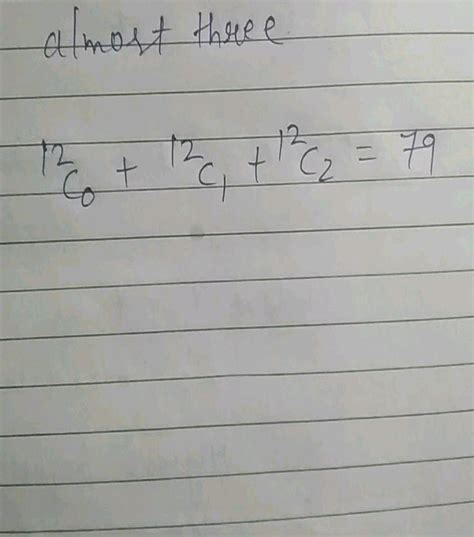 almost three
¹²C₀ + ¹²C₁ + ¹²C₂ = 79